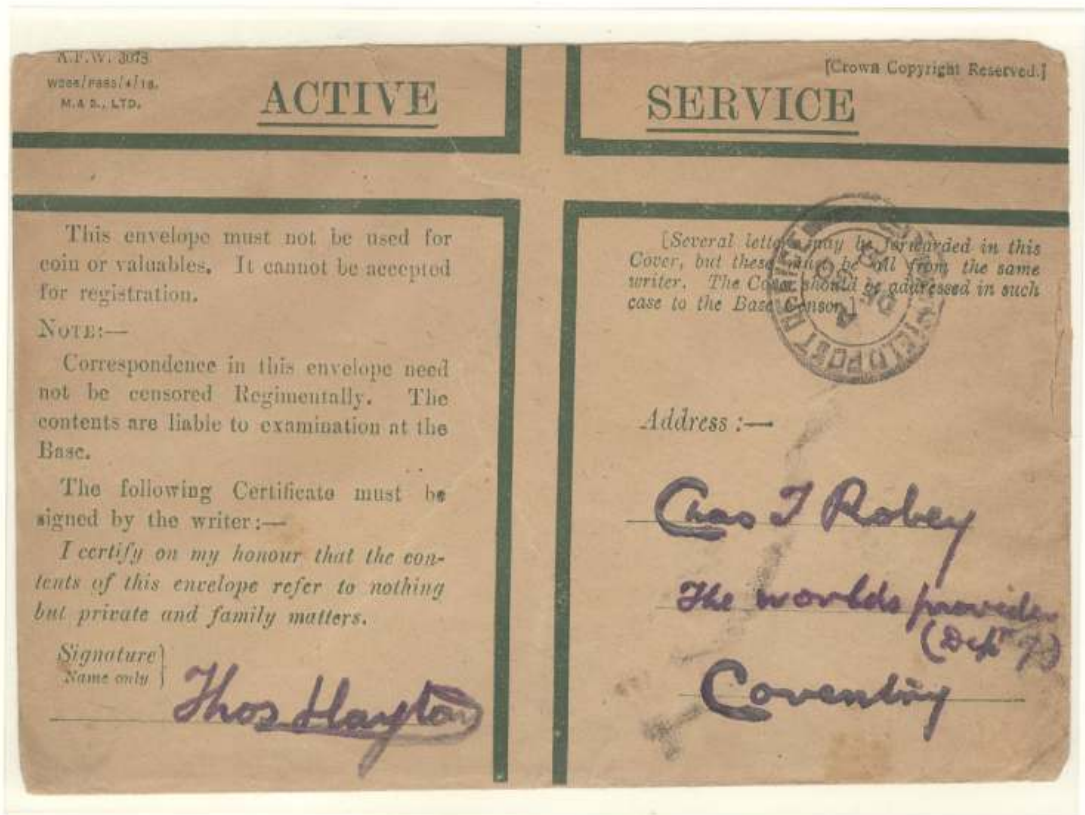 A.F.W. 3078
W266/P885/4/18.
M. & S., LTD.
ACTIVE
SERVICE
[Crown Copyright Reserved.]
This envelope must not be used for
coin or valuables. It cannot be accepted
for registration.
NOTE:—
Correspondence in this envelope need
not be censored Regimentally. The
contents are liable to examination at the
Base.
The following Certificate must be
signed by the writer:—
I certify on my honour that the con-
tents of this envelope refer to nothing
but private and family matters.
Signature }
Name only }
Thos Hayton
[Several letters may be forwarded in this
Cover, but these must be all from the same
writer. The Cover should be addressed in such
case to the Base Censor.]
FIELD POST
Address :—
Chas T Robey
The worlds provider
(Dept
Coventry